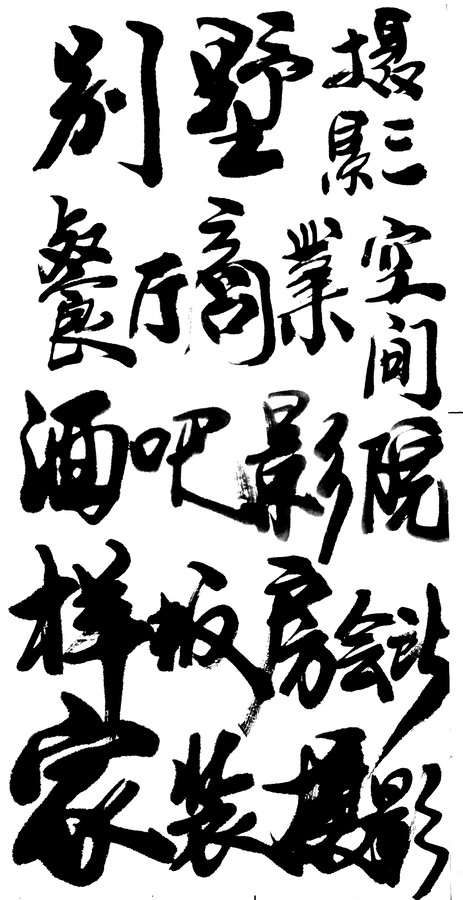 别墅摄影
餐厅商業空间
酒吧影院
样板房会所
家装摄影